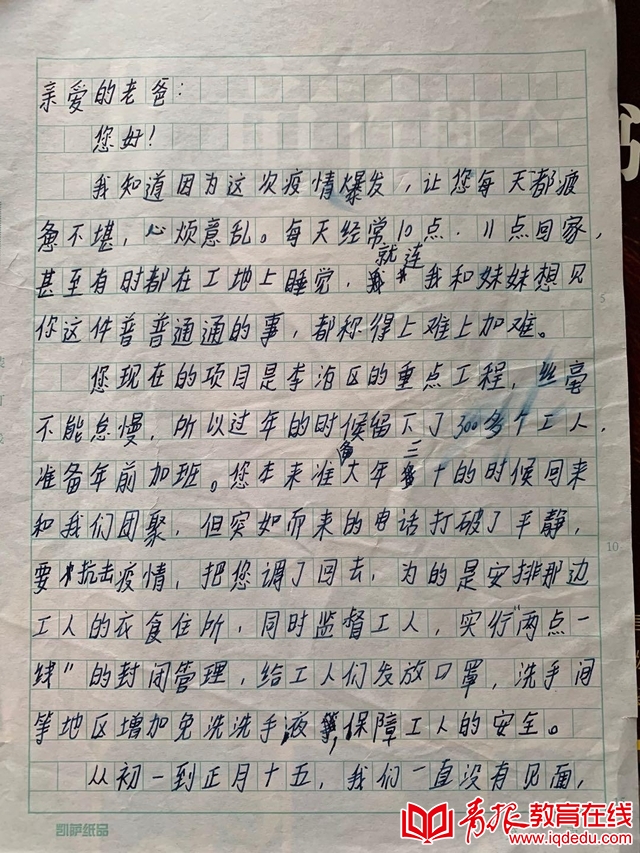 亲爱的老爸：
您好！
我知道因为这次疫情爆发，让您每天都疲
惫不堪，心烦意乱。每天经常10点．11点回家，
甚至有时都在工地上睡觉，就连我和妹妹想见
你这件普普通通的事，都称得上难上加难。
您现在的项目是李沧区的重点工程，丝毫
不能怠慢，所以过年的时候留下了300多个工人，
准备年前加班。您本来准备大年三十的时候回来
和我们团聚，但突如而来的电话打破了平静，
要抗击疫情，把您调了回去，为的是安排那边
工人的衣食住所，同时监督工人，实行“两点一
线”的封闭管理，给工人们发放口罩，洗手间
等地区增加免洗洗手液等，保障工人的安全。
从初一到正月十五，我们一直没有见面，
5
10
凯萨纸品
青报教育在线
www.iqdedu.com